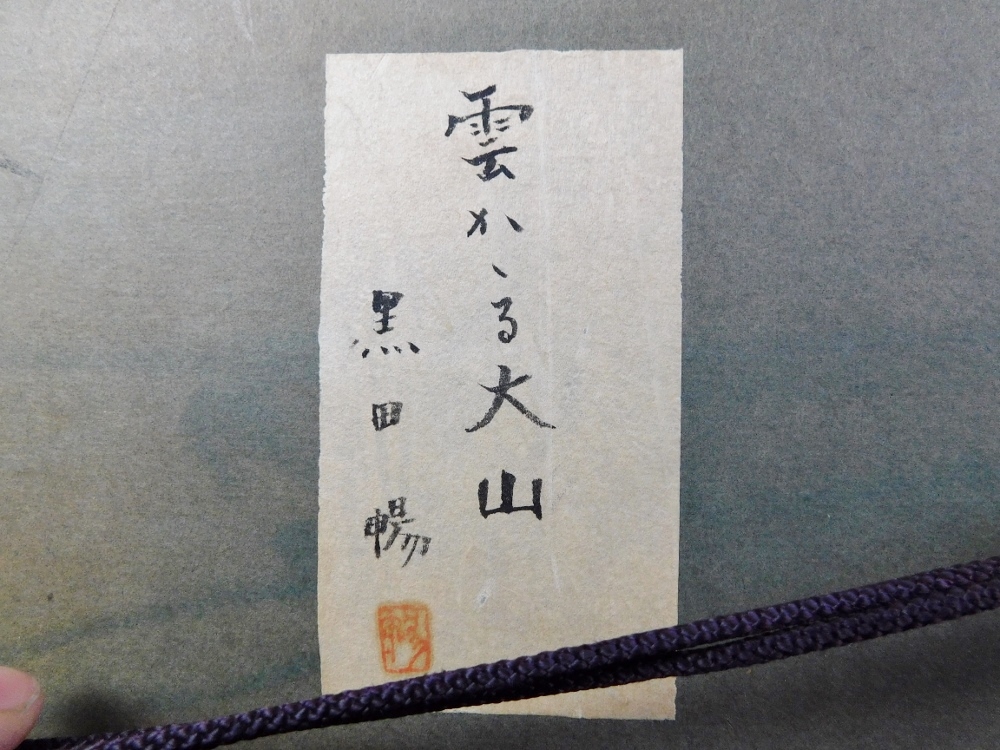 雲かゝる大山
黒田暢